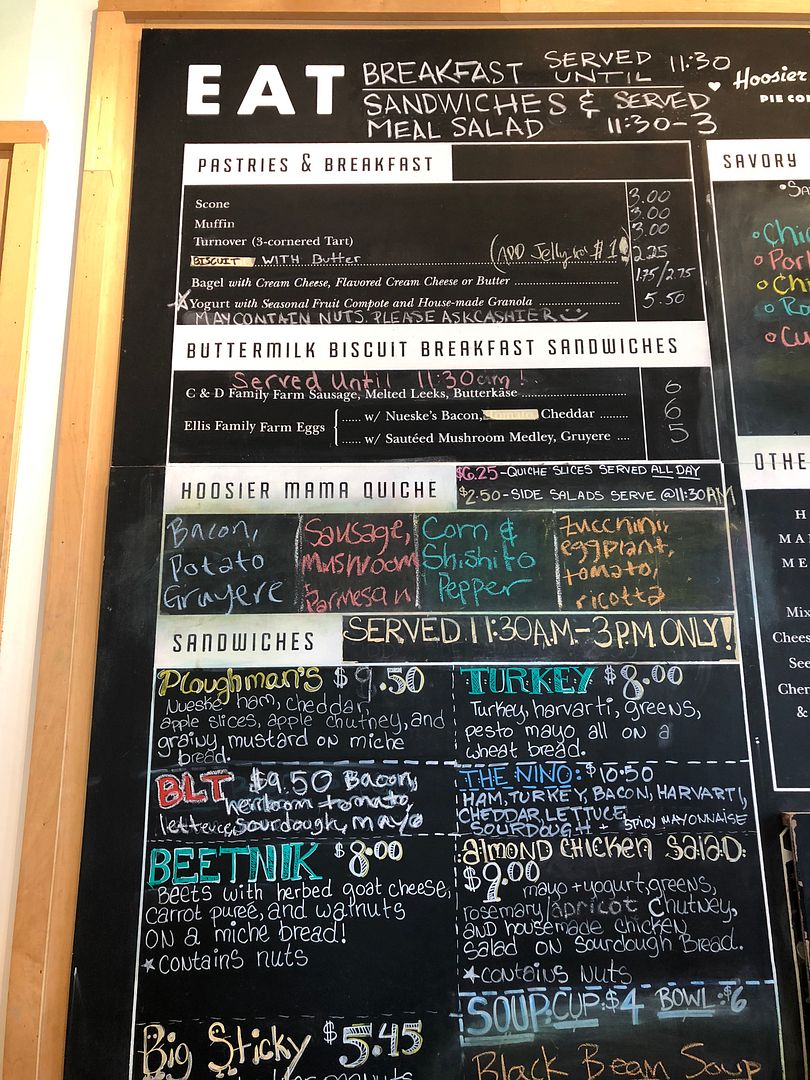 EAT BREAKFAST SERVED UNTIL 11:30
SANDWICHES & MEAL SALAD SERVED 11:30-3
Hoosier
PIE CO
PASTRIES & BREAKFAST
Scone 3.00
Muffin 3.00
Turnover (3-cornered Tart) 3.00
BISCUIT WITH Butter (ADD Jelly for $1) 2.25
Bagel with Cream Cheese, Flavored Cream Cheese or Butter 1.75/2.75
Yogurt with Seasonal Fruit Compote and House-made Granola 5.50
MAY CONTAIN NUTS. PLEASE ASK CASHIER
BUTTERMILK BISCUIT BREAKFAST SANDWICHES
Served Until 11:30am!
C & D Family Farm Sausage, Melted Leeks, Butterkäse 6
Ellis Family Farm Eggs
w/ Nueske's Bacon, Tomato, Cheddar 6
w/ Sautéed Mushroom Medley, Gruyere 5
HOOSIER MAMA QUICHE
$6.25-QUICHE SLICES SERVED ALL DAY
$2.50-SIDE SALADS SERVE @11:30AM
Bacon,
Potato
Gruyere
Sausage,
Mushroom
Parmesan
Corn &
Shishito
Pepper
Zucchini,
eggplant,
tomato,
ricotta
SANDWICHES
SERVED 11:30A.M.-3P.M. ONLY!
Ploughman's $9.50
Nueske ham, cheddar,
apple slices, apple chutney, and
grainy mustard on miche
bread.
TURKEY $8.00
Turkey, harvarti, greens,
pesto mayo all on a
wheat bread.
BLT $9.50 Bacon,
heirloom tomato,
lettuce, sourdough, mayo
THE NINO: $10.50
HAM, TURKEY, BACON, HARVARTI,
CHEDDAR, LETTUCE
SOURDOUGH + SPICY MAYONNAISE
BEETNIK $8.00
Beets with herbed goat cheese,
carrot pureé, and walnuts
on a miche bread!
*contains nuts
almond chicken salad:
$9.00 mayo + yogurt, greens,
rosemary/apricot Chutney,
AND housemade chicken
salad on sourdough Bread.
*contains nuts
Big Sticky $5.45
SOUP: CUP: $4 BOWL: $6
Black Bean Soup
SAVORY
Chi
Por
Ch
Ro
Cu
OTHE
H
MA
ME
Mix
Chees
See
Cher
&